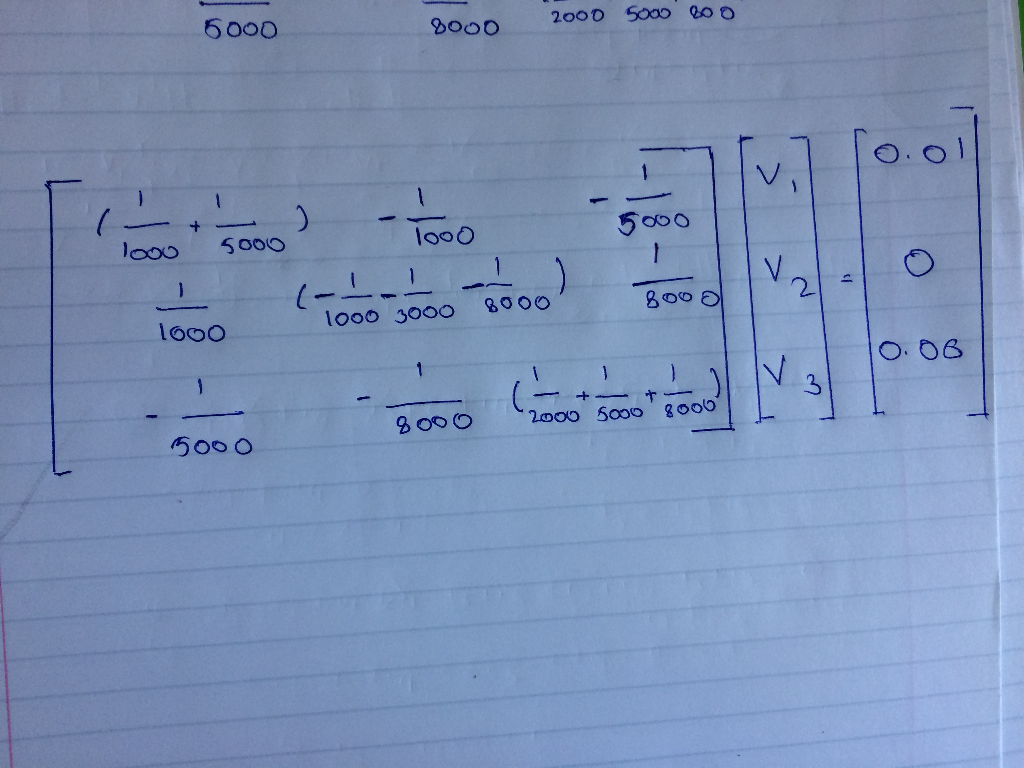 5000 8000 2000 5000 800
[ (1/1000 + 1/5000) -1/1000 -1/5000 ] [ V1 ] [ 0.01 ]
[ 1/1000 (-1/1000 -1/3000 -1/8000) 1/8000 ] [ V2 ] = [ 0 ]
[ -1/5000 -1/8000 (1/2000 + 1/5000 + 1/8000) ] [ V3 ] [ 0.06 ]